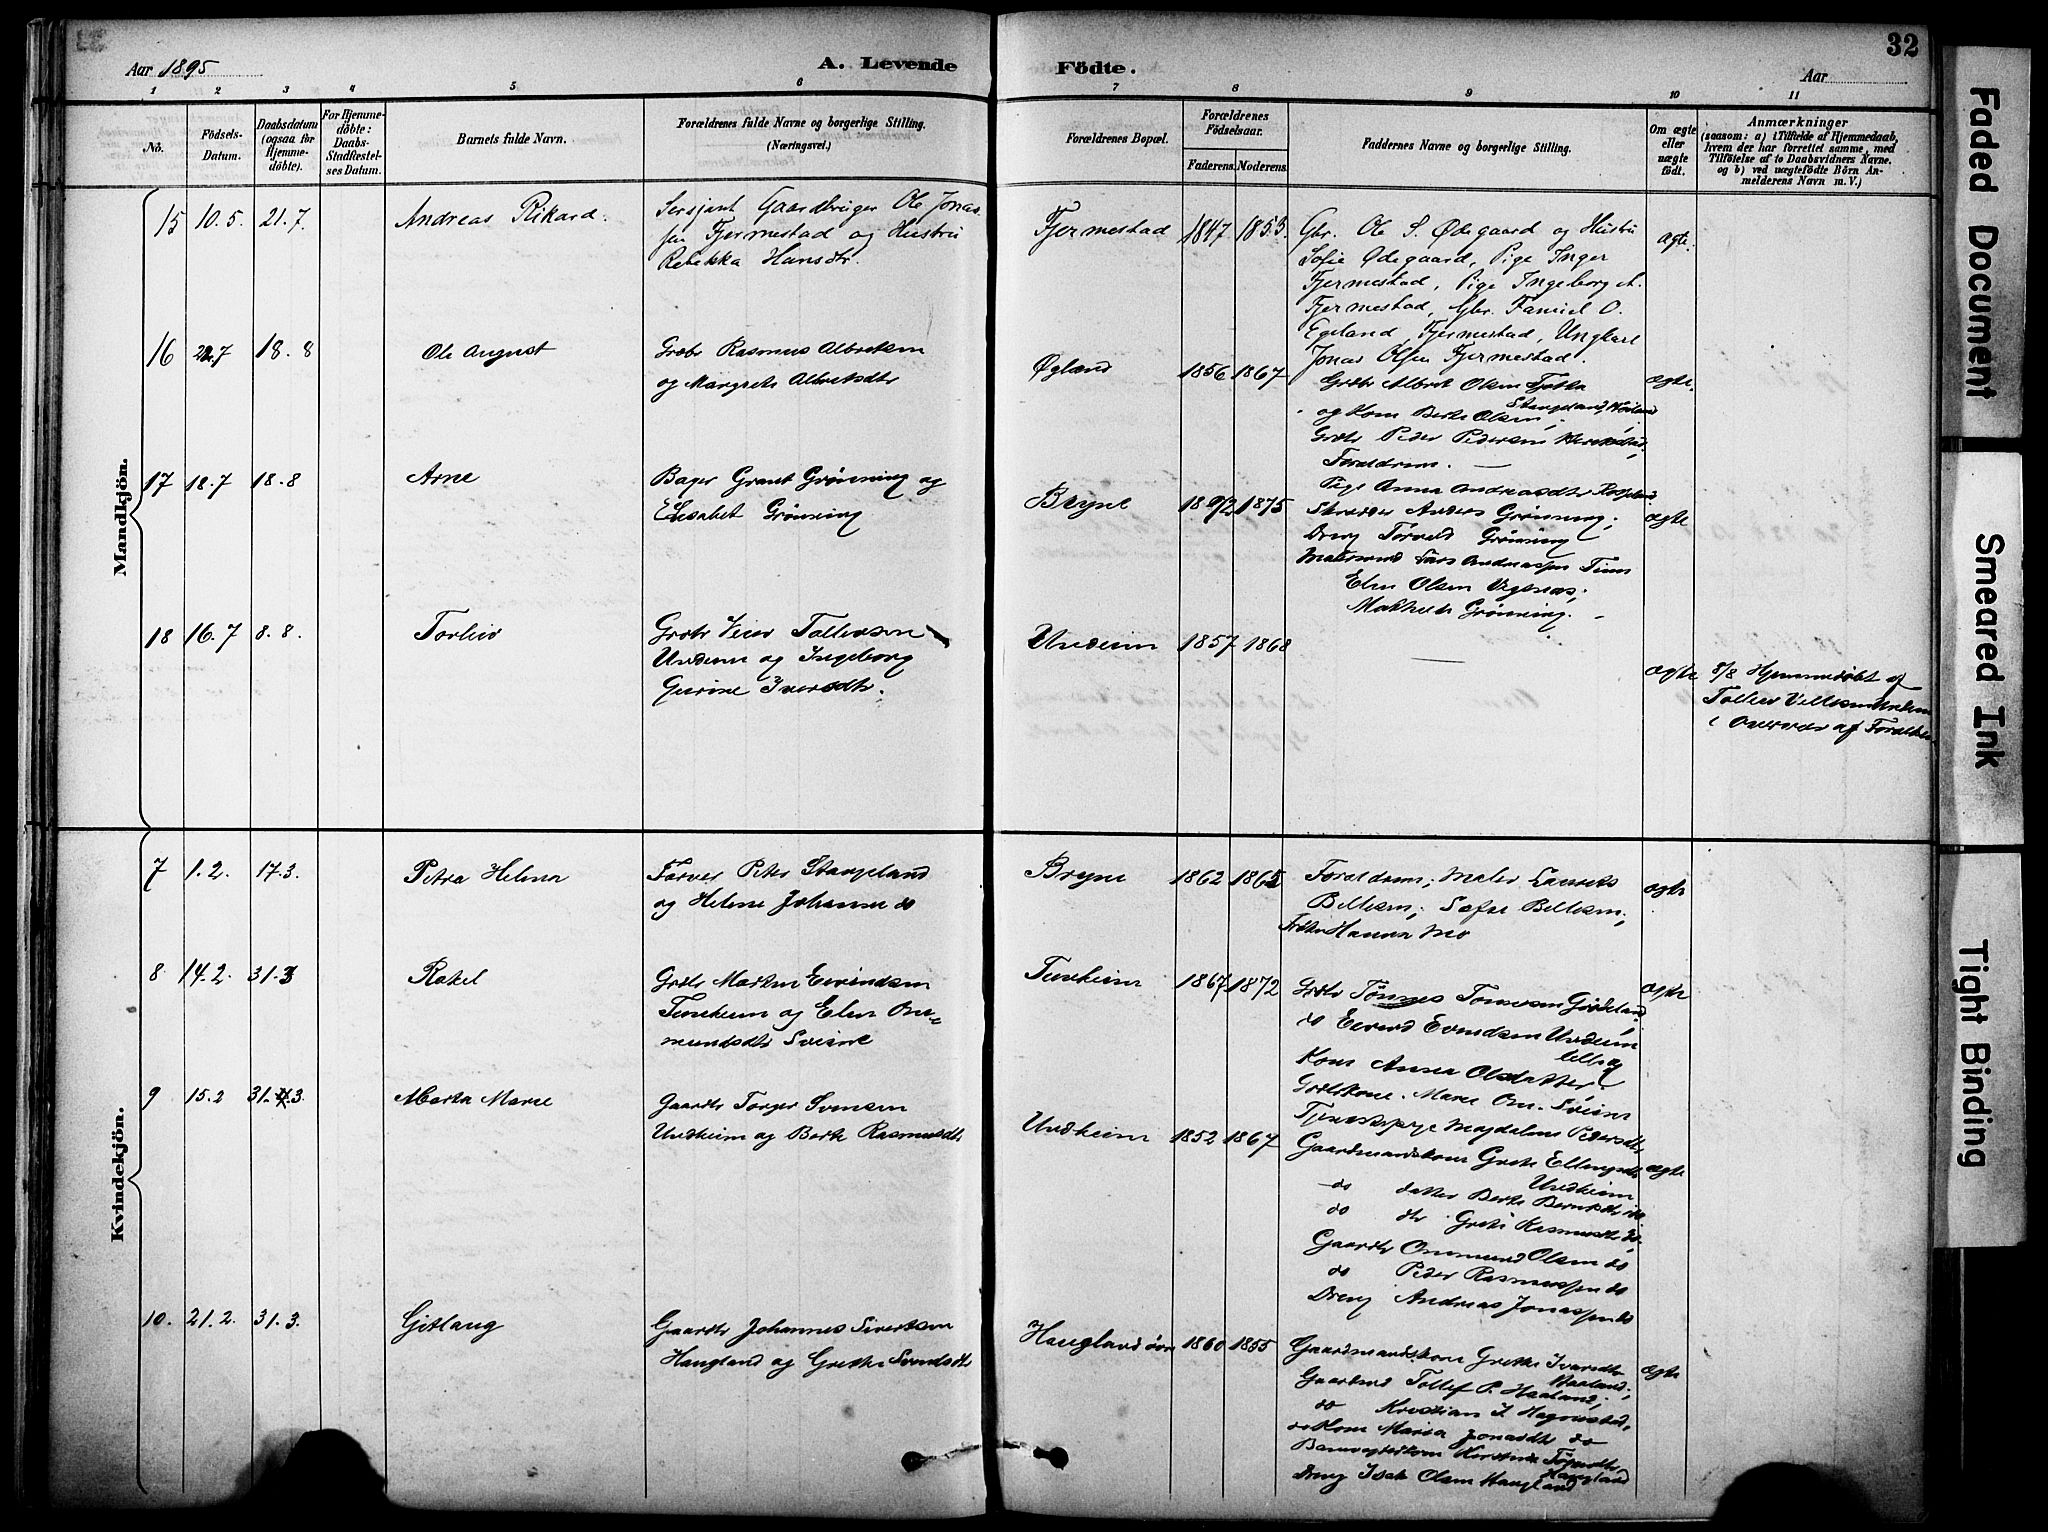 Aar 1895
A. Levende
Födte.
Aar
32
1 2 3 4 5 6 7 8 9 10 11
No.
Födsels-
Datum.
Daabsdatum
(ogsaa for
Hjemme-
döbte).
For Hjemme-
döbte:
Daabs-
Stadfæstel-
ses Datum.
Barnets fulde Navn.
Forældrenes fulde Navne og borgerlige Stilling.
(Næringsvei.)
Forældrenes Bopæl.
Forældrenes
Födselsaar.
Faderens. Moderens.
Faddernes Navne og borgerlige Stilling.
Om ægte
eller
uægte
födt.
Anmærkninger
(saasom: a) i Tilfælde af Hjemmedaab,
hvem der har forrettet samme, med
Tilföielse af to Daabsvidners Navne.
og b) ved uægtefödte Börn An-
melderens Navn m. V.)
Mandkjön.
15 10.5. 21.7. Andreas Rikard.
Sersjant Gaardbruger Ole Jonas-
sen Fjermestad og Hustru
Rebekka Hansdtr.
Fjermestad 1847 1853.
Gbr. Ole S. Ødegaard og Hustru
Sofie Ødegaard, Pige Inger
Fjermestad, Pige Ingeborg A.
Fjermestad, Gbr. O.
Egeland, Fjermestad, Ungkarl
Jonas Olsen Fjermestad.
ægte.
16 22.7 18.8 Ole August
Grdbr Rasmus Albretsen
og Margrete Albretsdtr
Øgland 1856 1867
Grdbr Albret Olsen Tjøtta
Stangeland,
og Kone Berte Olsen,
Grdbr Peder Pedersen
Forældrene. —
ægte.
17 18.7 18.8 Arne
Bager Grant Grønning og
Elisabet Grønning
Bryne 1875
Pige Anna Andreasdtr
Skredder Anders Grønning;
Dreng Torvald Grønning
Lars Andreassen Time
Elen Olsen
Grønning.
ægte
18 16.7 8.8. Torleiv
Grdbr Veier Tollevsen
Undeim og Ingeborg
Gurine Iversdtr.
Undeim 1857 1868
—
ægte
8/8 Hjemmedøbt af
Tollev
i Overvær af Forældrene
Kvindekjön.
7 1.2. 17.3. Petra Helene
Farver Peter Stangeland
og Helene Johanne do
Bryne 1862 1865
Forældrene; Maler Laurits
Belleson; Sofie Belleson;
Hanna Mo
ægte
8 14.2. 31.3 Rakel
Grdbr Morten Eivindsen
Tunheim og Elen Om-
mundsdtr Sveine
Tunheim 1867 1872
Grdbr Tønnes Tønnesen
do Eivind Eivindsen Undeim
Kone Anna Olsdatter
Grdbrkone. Marie Om. Sveine
Tjenestepige Magdalene Pedersdtr,
ægte
9 15.2 31.3. Marta Marie
Gaardb Torger Svensen
Undheim og Berte Rasmusdtr
Undheim 1852 1867
Gaardmandskone Grete Ellingsdtr
Undheim
do datter Berte do
do dtr Grete Rasmusdtr do
Gaardbr Ommund Olsen do
do Peder Rasmussen do
Dreng Andreas Jonassen do
ægte
10. 21.2. 31.3. Gitlaug
Gaardbr Johannes Sivertsen
Haugland og Grethe Svendsdtr
Hauglandsøen 1860 1855
Gaardmandskone Grethe Ivarsdtr
Haaland;
Gaardmd Tollef P. Haaland;
do Kristian I. Hognestad,
do Kone Maria Jonasdtr do
Haugland
Dreng Isak Olsen Haugland
ægte
Faded Document
Smeared Ink
Tight Binding